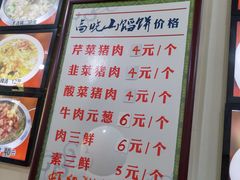 高晓山馅饼价格
芹菜猪肉 4元/个
韭菜猪肉 4元/个
酸菜猪肉 4元/个
牛肉元葱 6元/个
肉三鲜 6元/个
素三鲜 5元/个